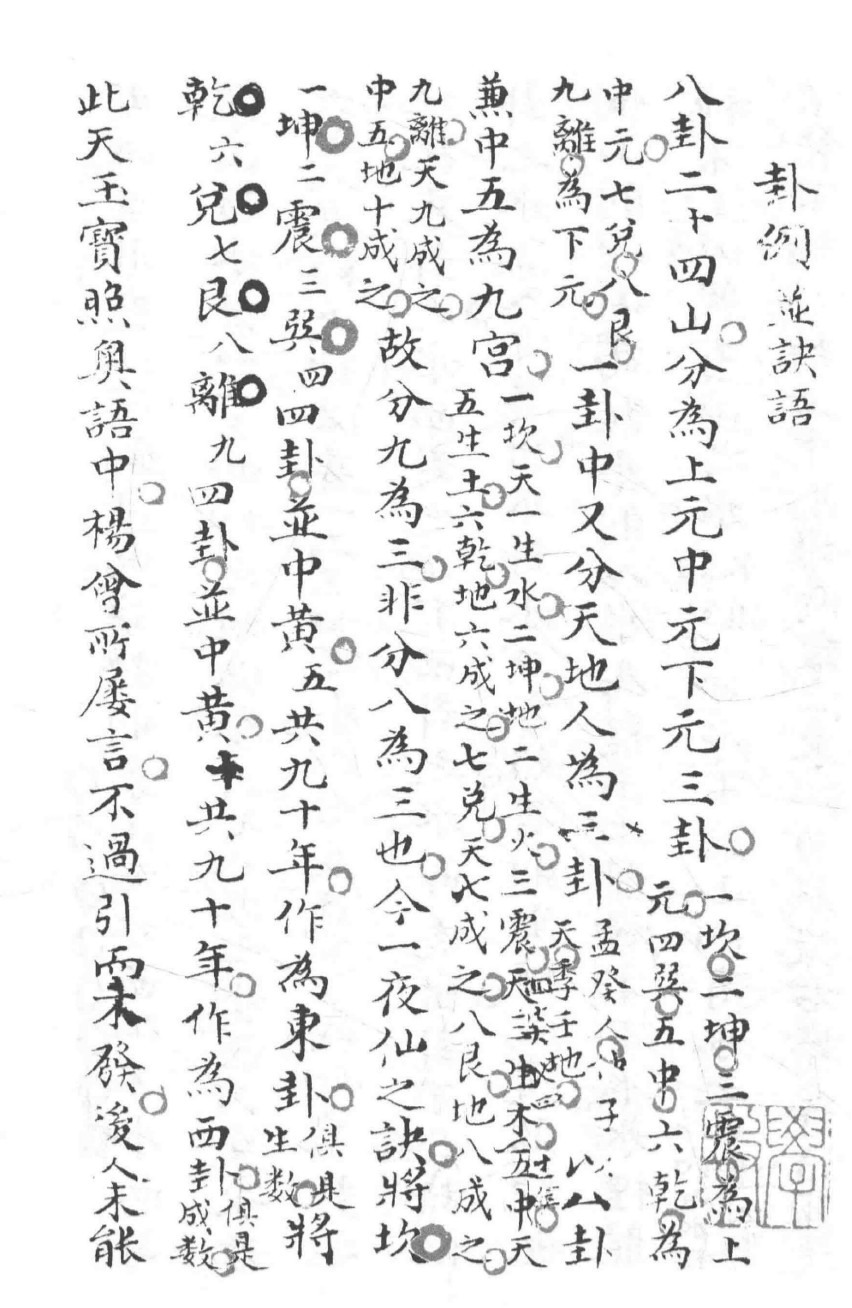 卦例 並訣語
八卦二十四山分為上元中元下元三卦 一坎二坤三震為上
元四巽五中六乾為
中元七兌八艮
九離為下元 一卦中又分天地人為三卦 孟癸人
天季壬地 以八卦
兼中五為九宮 一坎天一生水二坤地二生火三震天三生木五中天
五生土六乾地六成之七兌天七成之八艮地八成之
九離天九成之
中五地十成之 故分九為三非分八為三也今一夜仙之訣將坎
一坤二震三巽四四卦並中黃五共九十年作為東卦 俱是
生數 將
乾六兌七艮八離九四卦並中黃十共九十年作為西卦 俱是
成數
此天玉寶照奧語中楊曾所屢言不過引而未發後人未能